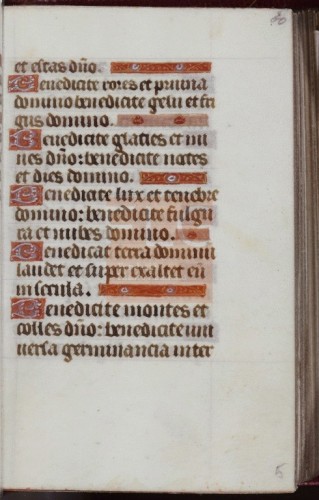 et estas dño.
Benedicite rores et pruina
domino benedicite gelu et fri
gus domino.
Benedicite glaties et ni
ues dño: benedicite noctes
et dies domino.
Benedicite lux et tenebre
domino: benedicite fulgu
ra et nubes domino.
Benedicat terra dominū
laudet et super exaltet eū
in secula.
Benedicite montes et
colles dño: benedicite uni
uersa germinancia in ter